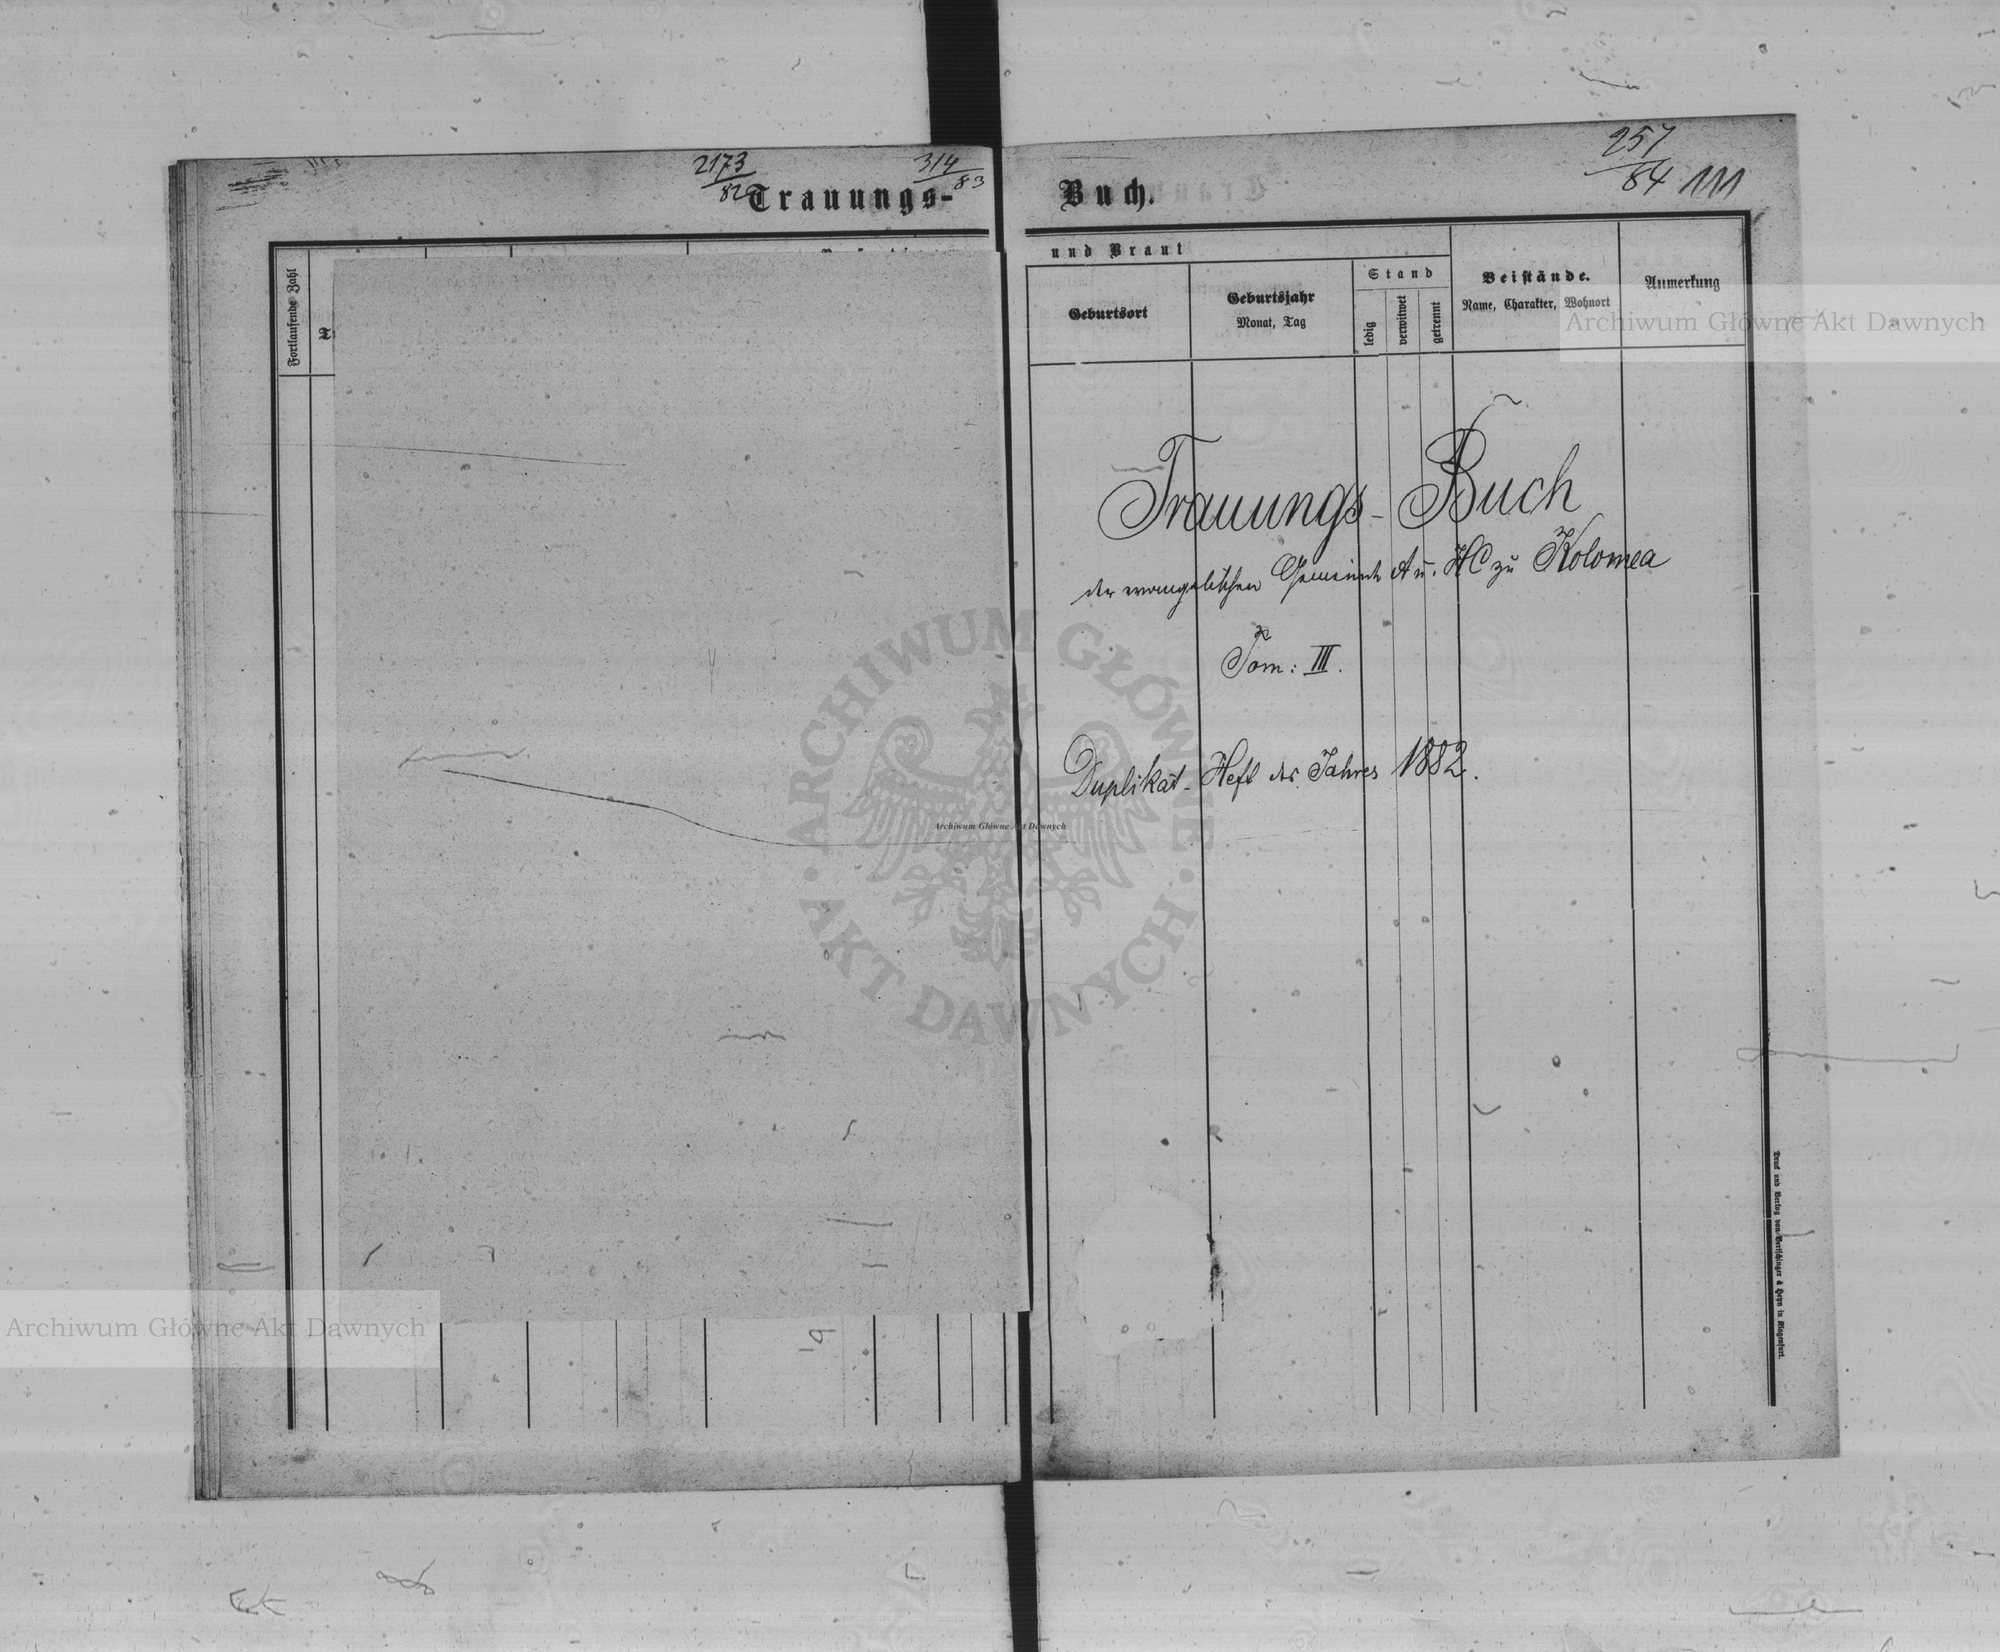 2173
82
314
83
Trauungs-
Fortlaufende Zahl
257
84
111
Buch.
und Braut
Geburtsort
Geburtsjahr
Monat, Tag
Stand
ledig
verwitwet
getrennt
Beistände.
Name, Charakter, Wohnort
Anmerkung
Archiwum Główne Akt Dawnych
Trauungs-Buch
der evangelischen Gemeinde A u. HC zu Kolomea
Tom: III.
Duplikat-Heft des Jahres 1882.
ARCHIWUM GŁÓWNE AKT DAWNYCH
Archiwum Główne Akt Dawnych
Archiwum Główne Akt Dawnych
Druck und Verlag von Bertschinger & Heyn in Klagenfurt.